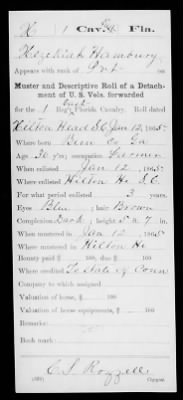 H | 1 | Cav. | Fla.
Hezekiah Hambury
Appears with rank of Pvt on
Muster and Descriptive Roll of a Detach-
ment of U. S. Vols. forwarded
for the 1 East Reg't Florida Cavalry. Roll dated
Hilton Head S.C. Jan 12, 1865
Where born Co Ga
Age 30 y'rs; occupation Farmer
When enlisted Jan 12, 1865
Where enlisted Hilton He S.C.
For what period enlisted 3 years.
Eyes Blue; hair Brown
Complexion Dark; height 5 ft. 7 in.
When mustered in Jan 12, 1865
Where mustered in Hilton He
Bounty paid $ 100; due $ 100
Where credited To State of Conn
Company to which assigned
Valuation of horse, $ 100
Valuation of horse equipments, $ 100
Remarks:
Book mark:
C. S. Rozzell
Copyist.